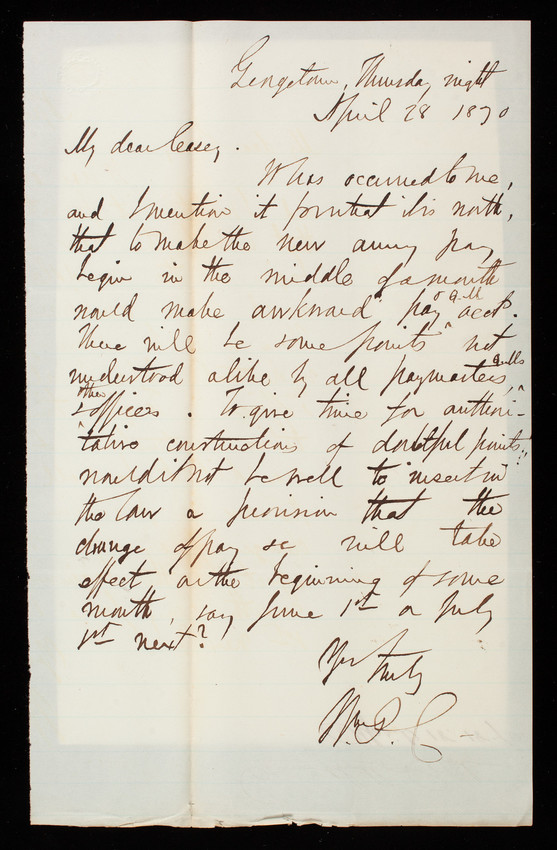 Georgetown, Thursday night
April 28 1870
My dear Casey.
It has occurred to me,
and I mention it for what it is worth,
that to make the new army pay
begin in the middle of a month
would make awkward pay & Q.M. accts.
There will be some points not
understood alike by all paymasters, Q.M.s
& other officers. To give time for authori-
tative constructions of doubtful points,
would it not be well to insert in
the law a provision that the
change of pay &c will take
effect, on the beginning of some
month, say June 1st or July
1st next?
Yrs truly